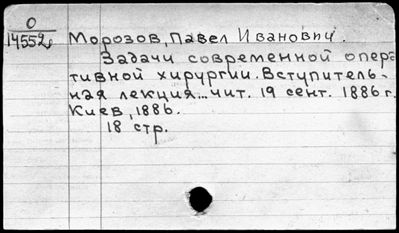 О
14552
Морозов, Павел Иванович.
Задачи современной опера-
тивной хирургии. Вступитель-
ная лекция... чит. 19 сент. 1886 г.
Киев, 1886.
18 стр.